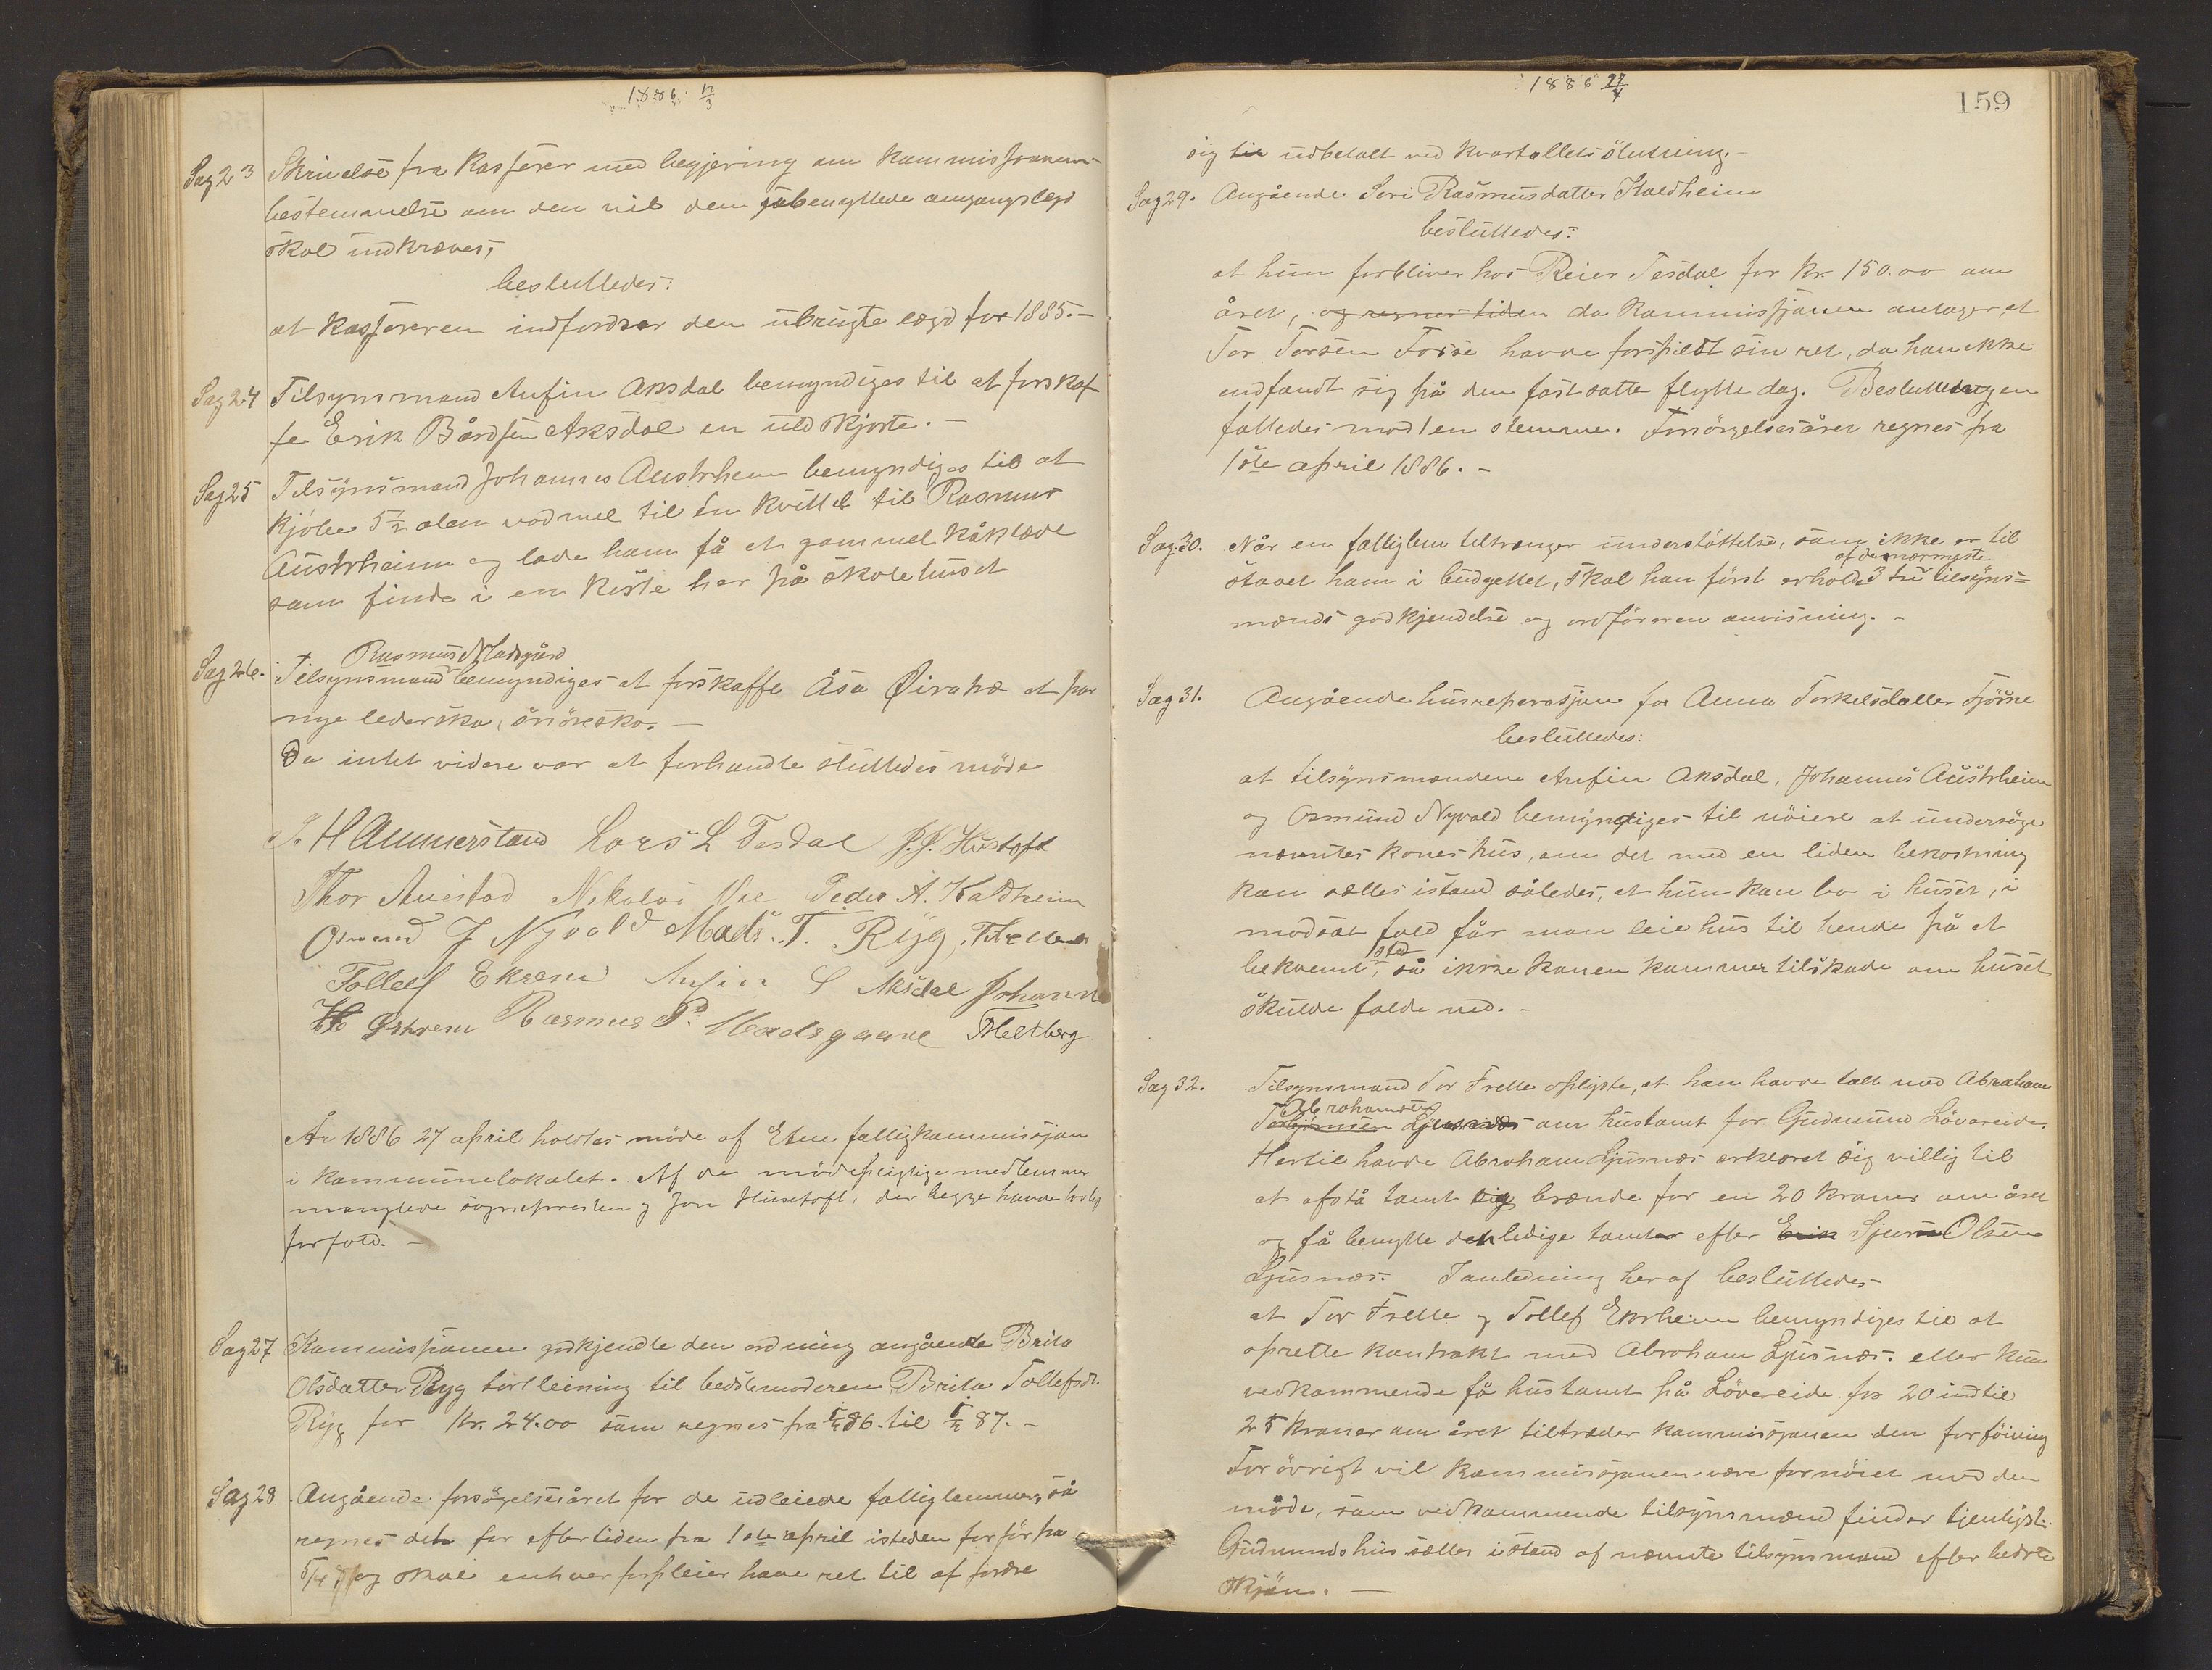 1886. 12/3
Sag 23 Skrivelse fra Kasserer med begjæring om kommissjonens
bestemmelse om den vil den ubenyttede omgangslægd
skal indkræves,
besluttedes:
at kassereren indfordrer den ubrugte lægd for 1885.-
Sag 24 Tilsynsmand Anfin Aksdal bemyndiges til at forskaf
fe Erik Bårdsen Aksdal en uldskjorte. -
Sag 25 Tilsynsmand Johannes Austrheim bemyndiges til at
kjöbe 5 1/2 alen vadmel til én kvittel til Rasmus
Austrheim og lade ham få et gammel
som finde i en kiste her på skolehuset
Rasmus Madsgård
Sag 26. Tilsynsmand bemyndiges at forskaffe Åsa et par
nye lædersko, snöresko. -
Da intet videre var at forhandle sluttedes möde
Hammerstand Lars L Tesdal J. J. Hustoft
Thor Austad Nikolai Vae Peder A. Kaldheim
Osmund J Nyvold Mads. T. Ryg, T. Frette
Tollef Ekrem Anfin S Aksdal Johann
H Østrem Rasmus P. Madsgaard Meltberg
År 1886 27 april holdtes möde af Etne fattigkommissjon
i kommunelokalet. Af de mödepligtige medlemmer
manglede sognepresten og Jon Hustoft, der begge havde lovlig
forfald. -
Sag 27 Kommissjonen godkjendte den ordning angående Brita
Olsdatter Ryg bortleining til bedstemoderen Brita Tollefsdr.
Ryg for Kr. 24.00 som regnes fra 5/4 86. til 5/4 87. -
Sag 28. Angående forsörgelsesåret for de udleiede fattiglemmer, så
regnes det for eftertiden fra 1ste april isteden for för fra
5/4, og skal enhver forpleier have ret til at fordre
1886 27/4
159
sig til udbetalt ved kvartallets slutning. -
Sag 29. Angående Siri Rasmusdatter Kaldheim
besluttedes:
at hun forbliver hos Reier Tesdal for kr. 150.00 om
året, og regnes tiden da kommissjonen antager, at
Tor Torsen Fosse havde forspildt sin ret, da han ikke
indfandt sig på den fastsatte flyttedag. Beslutningen
fattedes mod 1 en stemme. Forsörgelsesåret regnes fra
1ste april 1886. -
Sag. 30. Når en fattiglem tiltrænger understöttelse, som ikke er til
af de nærmeste
stået ham i budgettet, skal han först erholde 3 tre tilsyns=
mænds godkjendelse og ordföreren anvisning. -
Sag 31. Angående husreparasjon for Anna Torkelsdatter Fjösne
besluttedes:
at tilsynsmændene Anfin Aksdal, Johannes Austrheim
og Osmund Nyvold bemyndiges til nöiere at undersöge
nævntes kones hus, om det med en liden bekostning
kan sættes istand således, at hun kan bo i huset, i
modsat fald får man leie hus til hende på et
sted
bekvemt, så ikke konen kommer tilskade om huset
skulde falde ned. -
Sag 32. Tilsynsmand Tor Frette oplyste, at han havde talt med Abraham
Abrahamsen
Torbjörnsen Ljusnæs om hustomt for Gudmund Lövareide.
Hertil havde Abraham Ljusnæs erklæret sig villig til
at afstå tomt og brænde for en 20 kroner om året
og få benytte den ledige tomter efter Erik Sjur Olsen
Ljusnæs. I anledning heraf besluttedes
at Tor Frette og Tollef Ekrheim bemyndiges til at
oprette kontrakt med Abraham Ljusnæs. eller kun
vedkommende få hustomt på Lövereide for 20 indtil
25 kroner om året tiltræder kommissjonen den forföining
For övrigt vil kommissjonen være fornöiet med den
måde, som vedkommende tilsynsmænd finder tjenligst.
Gudmunds hus sættes i stand af nævnte tilsynsmænd efter bedste
skjön. -